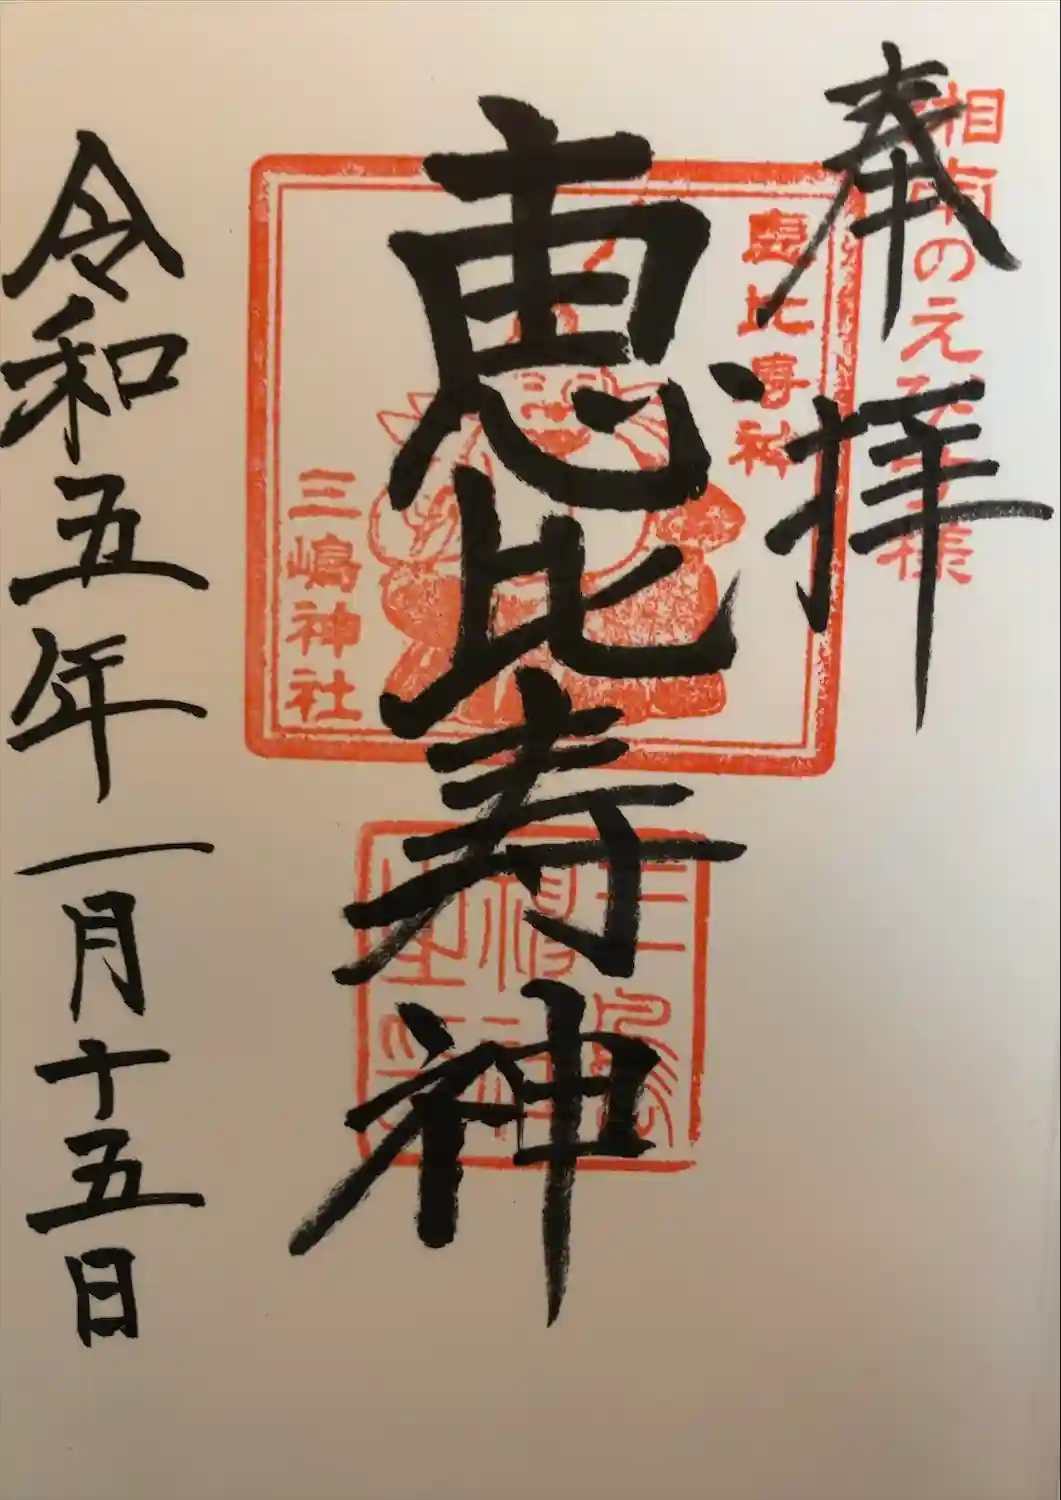 奉拝
相南のえびす様
恵比寿神
恵比寿神
三嶋神社
令和五年一月十五日